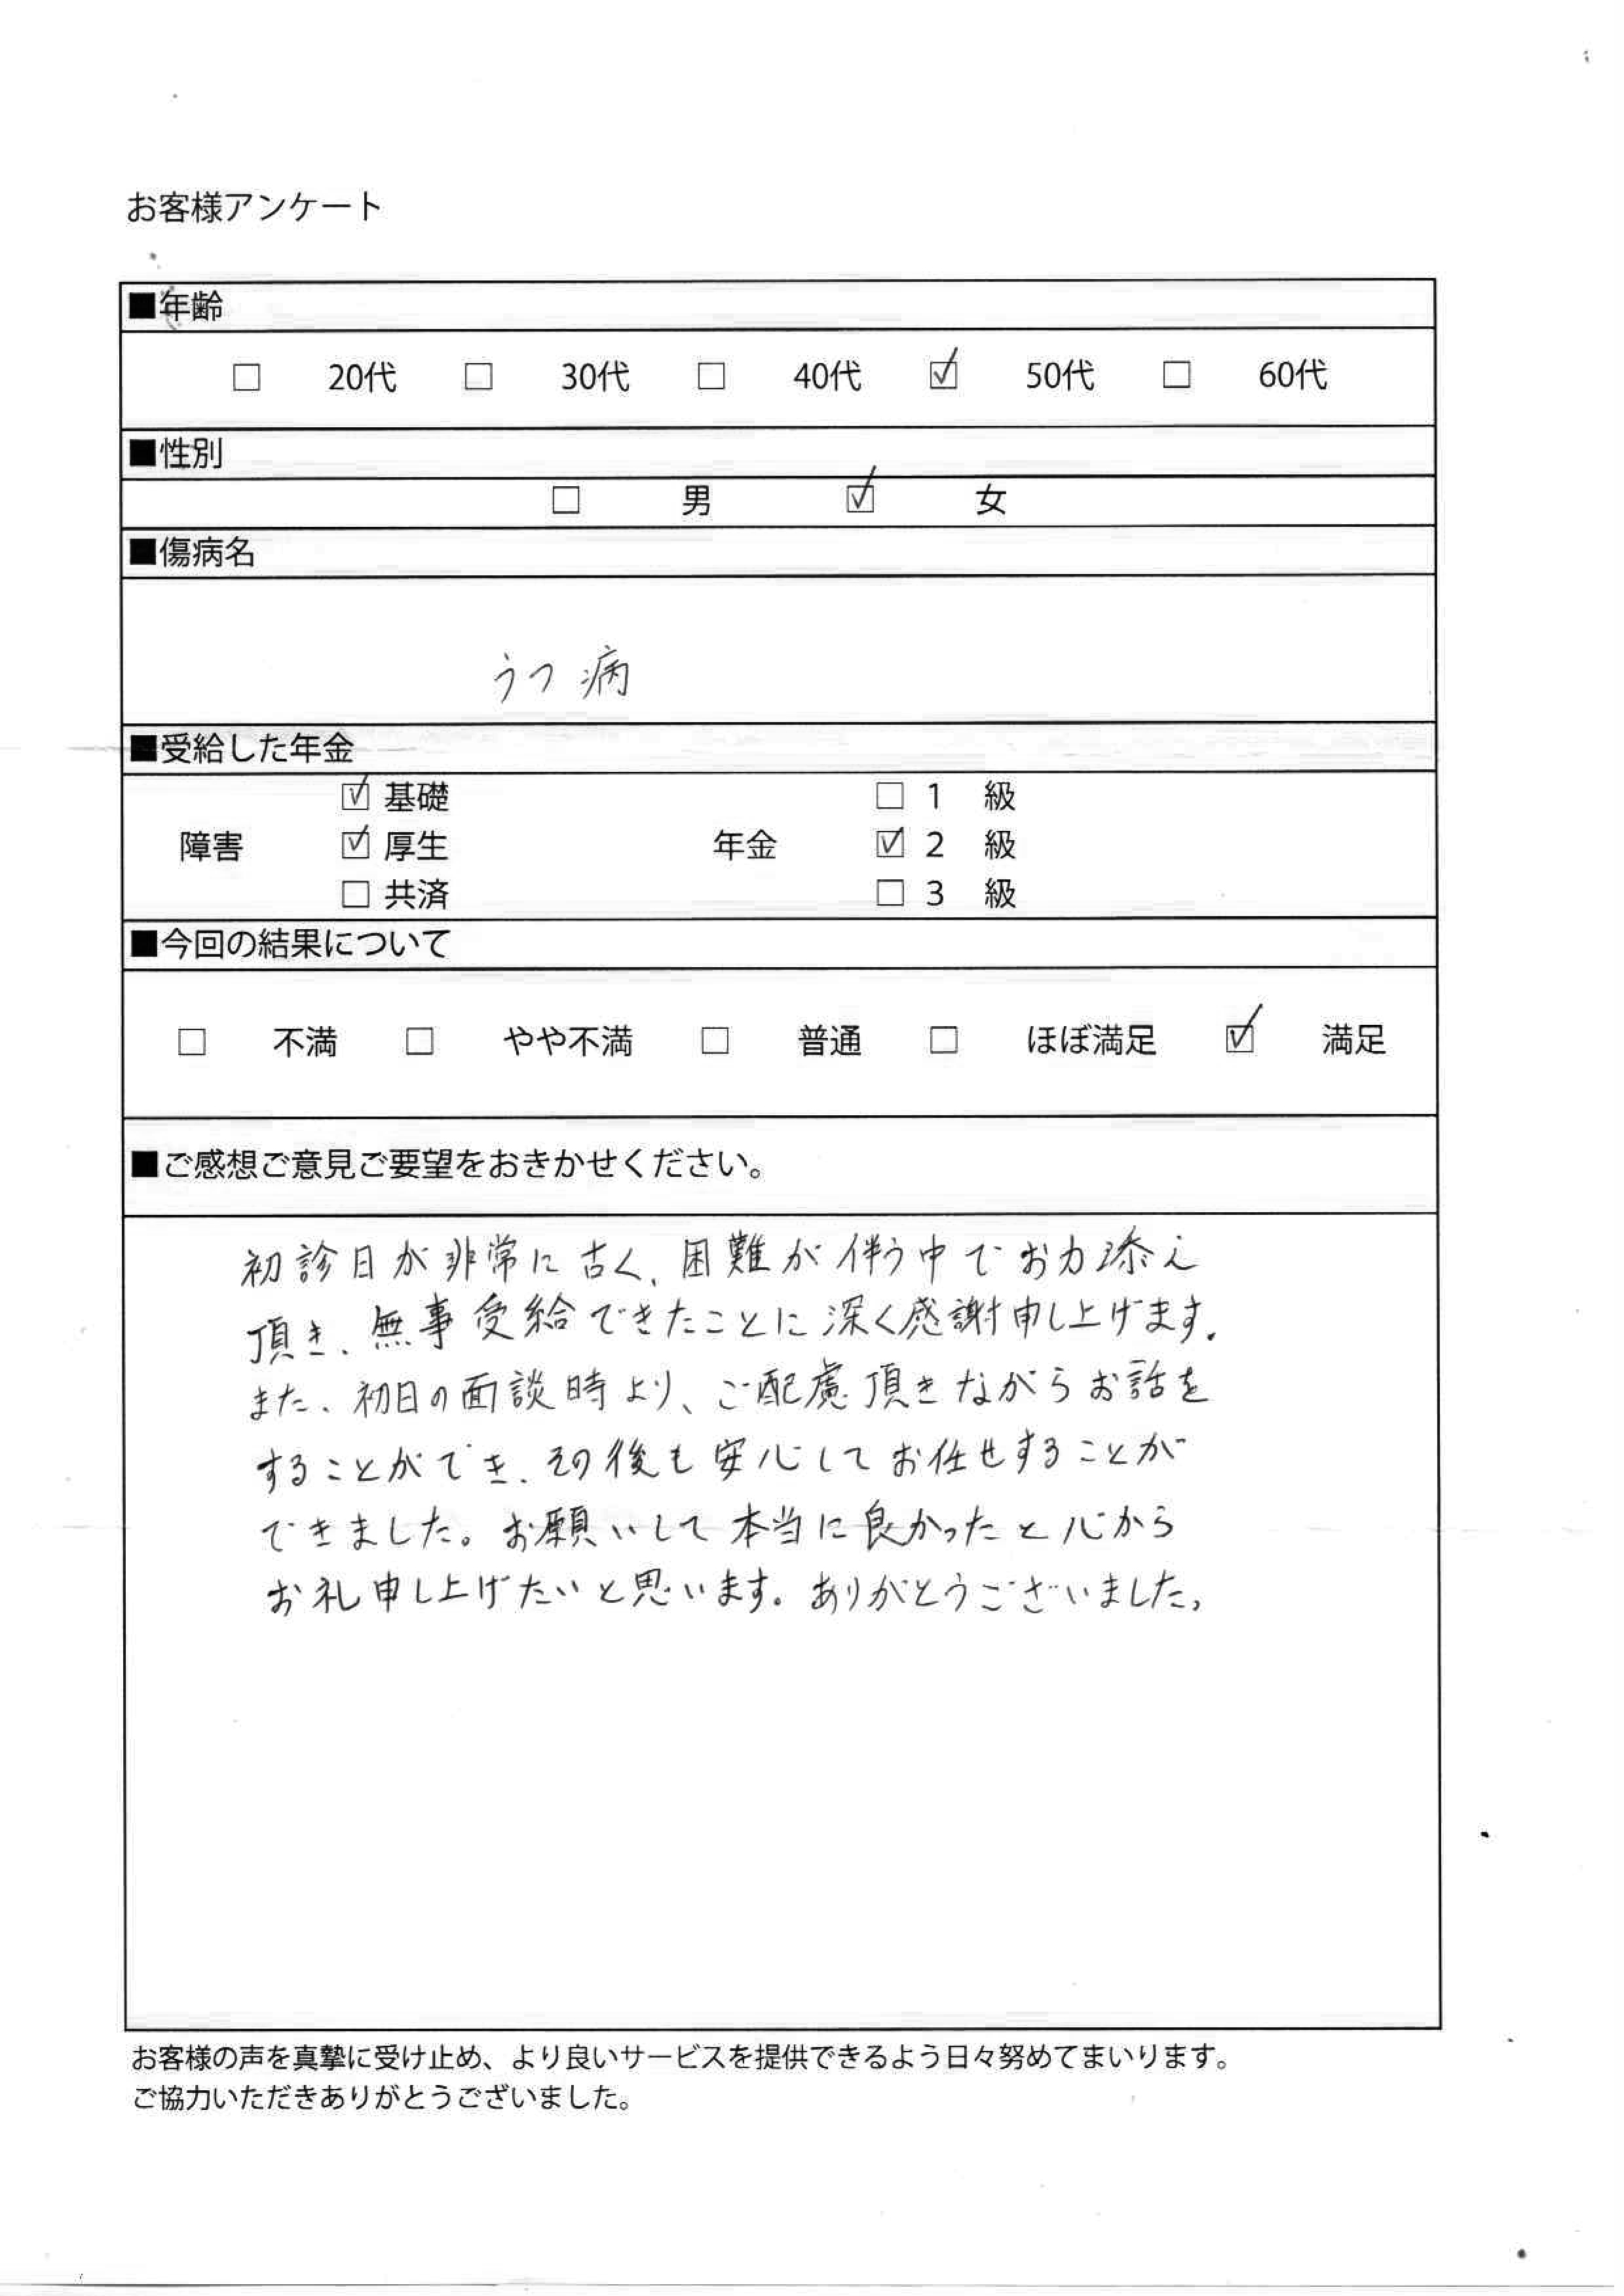 お客様アンケート
■年齢
□ 20代 □ 30代 □ 40代 ☑ 50代 □ 60代
■性別
□ 男 ☑ 女
■傷病名
うつ病
■受給した年金
☑ 基礎 □ 1 級
障害 ☑ 厚生 年金 ☑ 2 級
□ 共済 □ 3 級
■今回の結果について
□ 不満 □ やや不満 □ 普通 □ ほぼ満足 ☑ 満足
■ご感想ご意見ご要望をおきかせください。
初診日が非常に古く、困難が伴う中でお力添え
頂き、無事受給できたことに深く感謝申し上げます。
また、初日の面談時より、ご配慮頂きながらお話を
することができ、その後も安心してお任せすることが
できました。お願いして本当に良かったと心から
お礼申し上げたいと思います。ありがとうございました。
お客様の声を真摯に受け止め、より良いサービスを提供できるよう日々努めてまいります。
ご協力いただきありがとうございました。